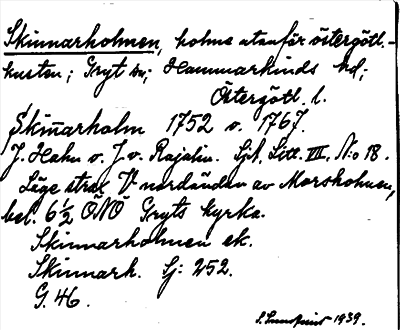 Skinnarholmen, holme utanför östergötl.-
kusten; Gryt sn; Hammarkinds hd;
Östergötl. l.
Skin̄arholm 1752 o. 1767.
J. Hahn o. J. v. Rajalin. Sjk. Litt. VII. No 18.
Läge strax V nordänden av Morsholmen,
bel. 6½ ÖNÖ Gryts kyrka.
Skinnarholmen ek.
Skinnark. Sj: 252.
G. 46.
1939.